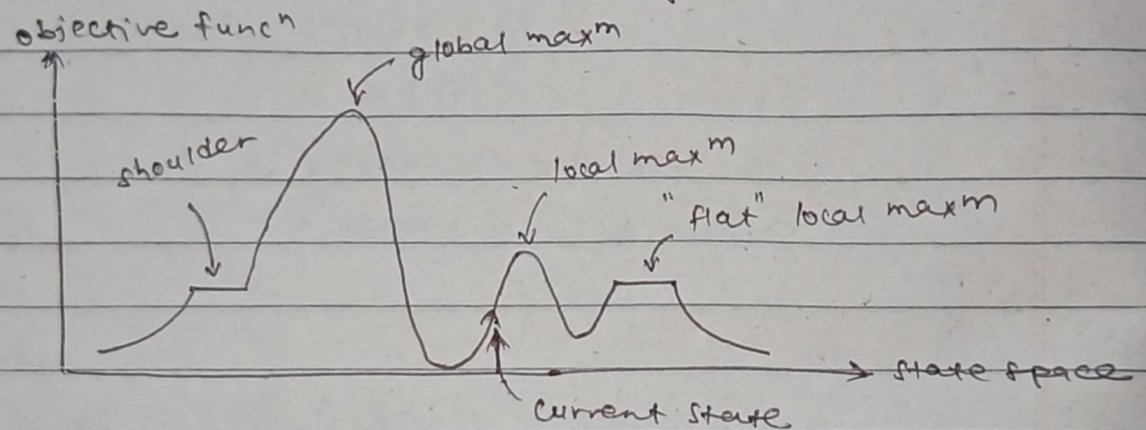 objective funcⁿ
global maxᵐ
shoulder
local maxᵐ
"flat" local maxᵐ
state space
current state